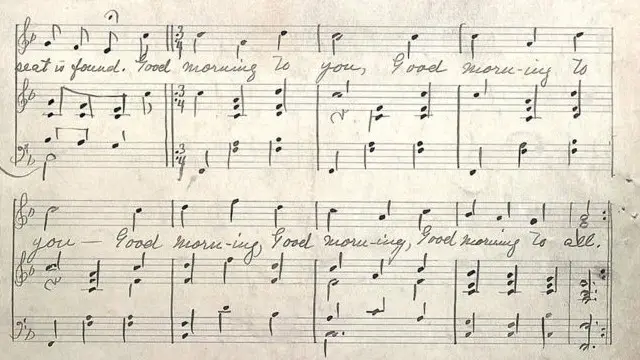 seat is found. Good morning to you, Good morn-ing to
you — Good morn-ing, Good morn-ing, Good morning to all.